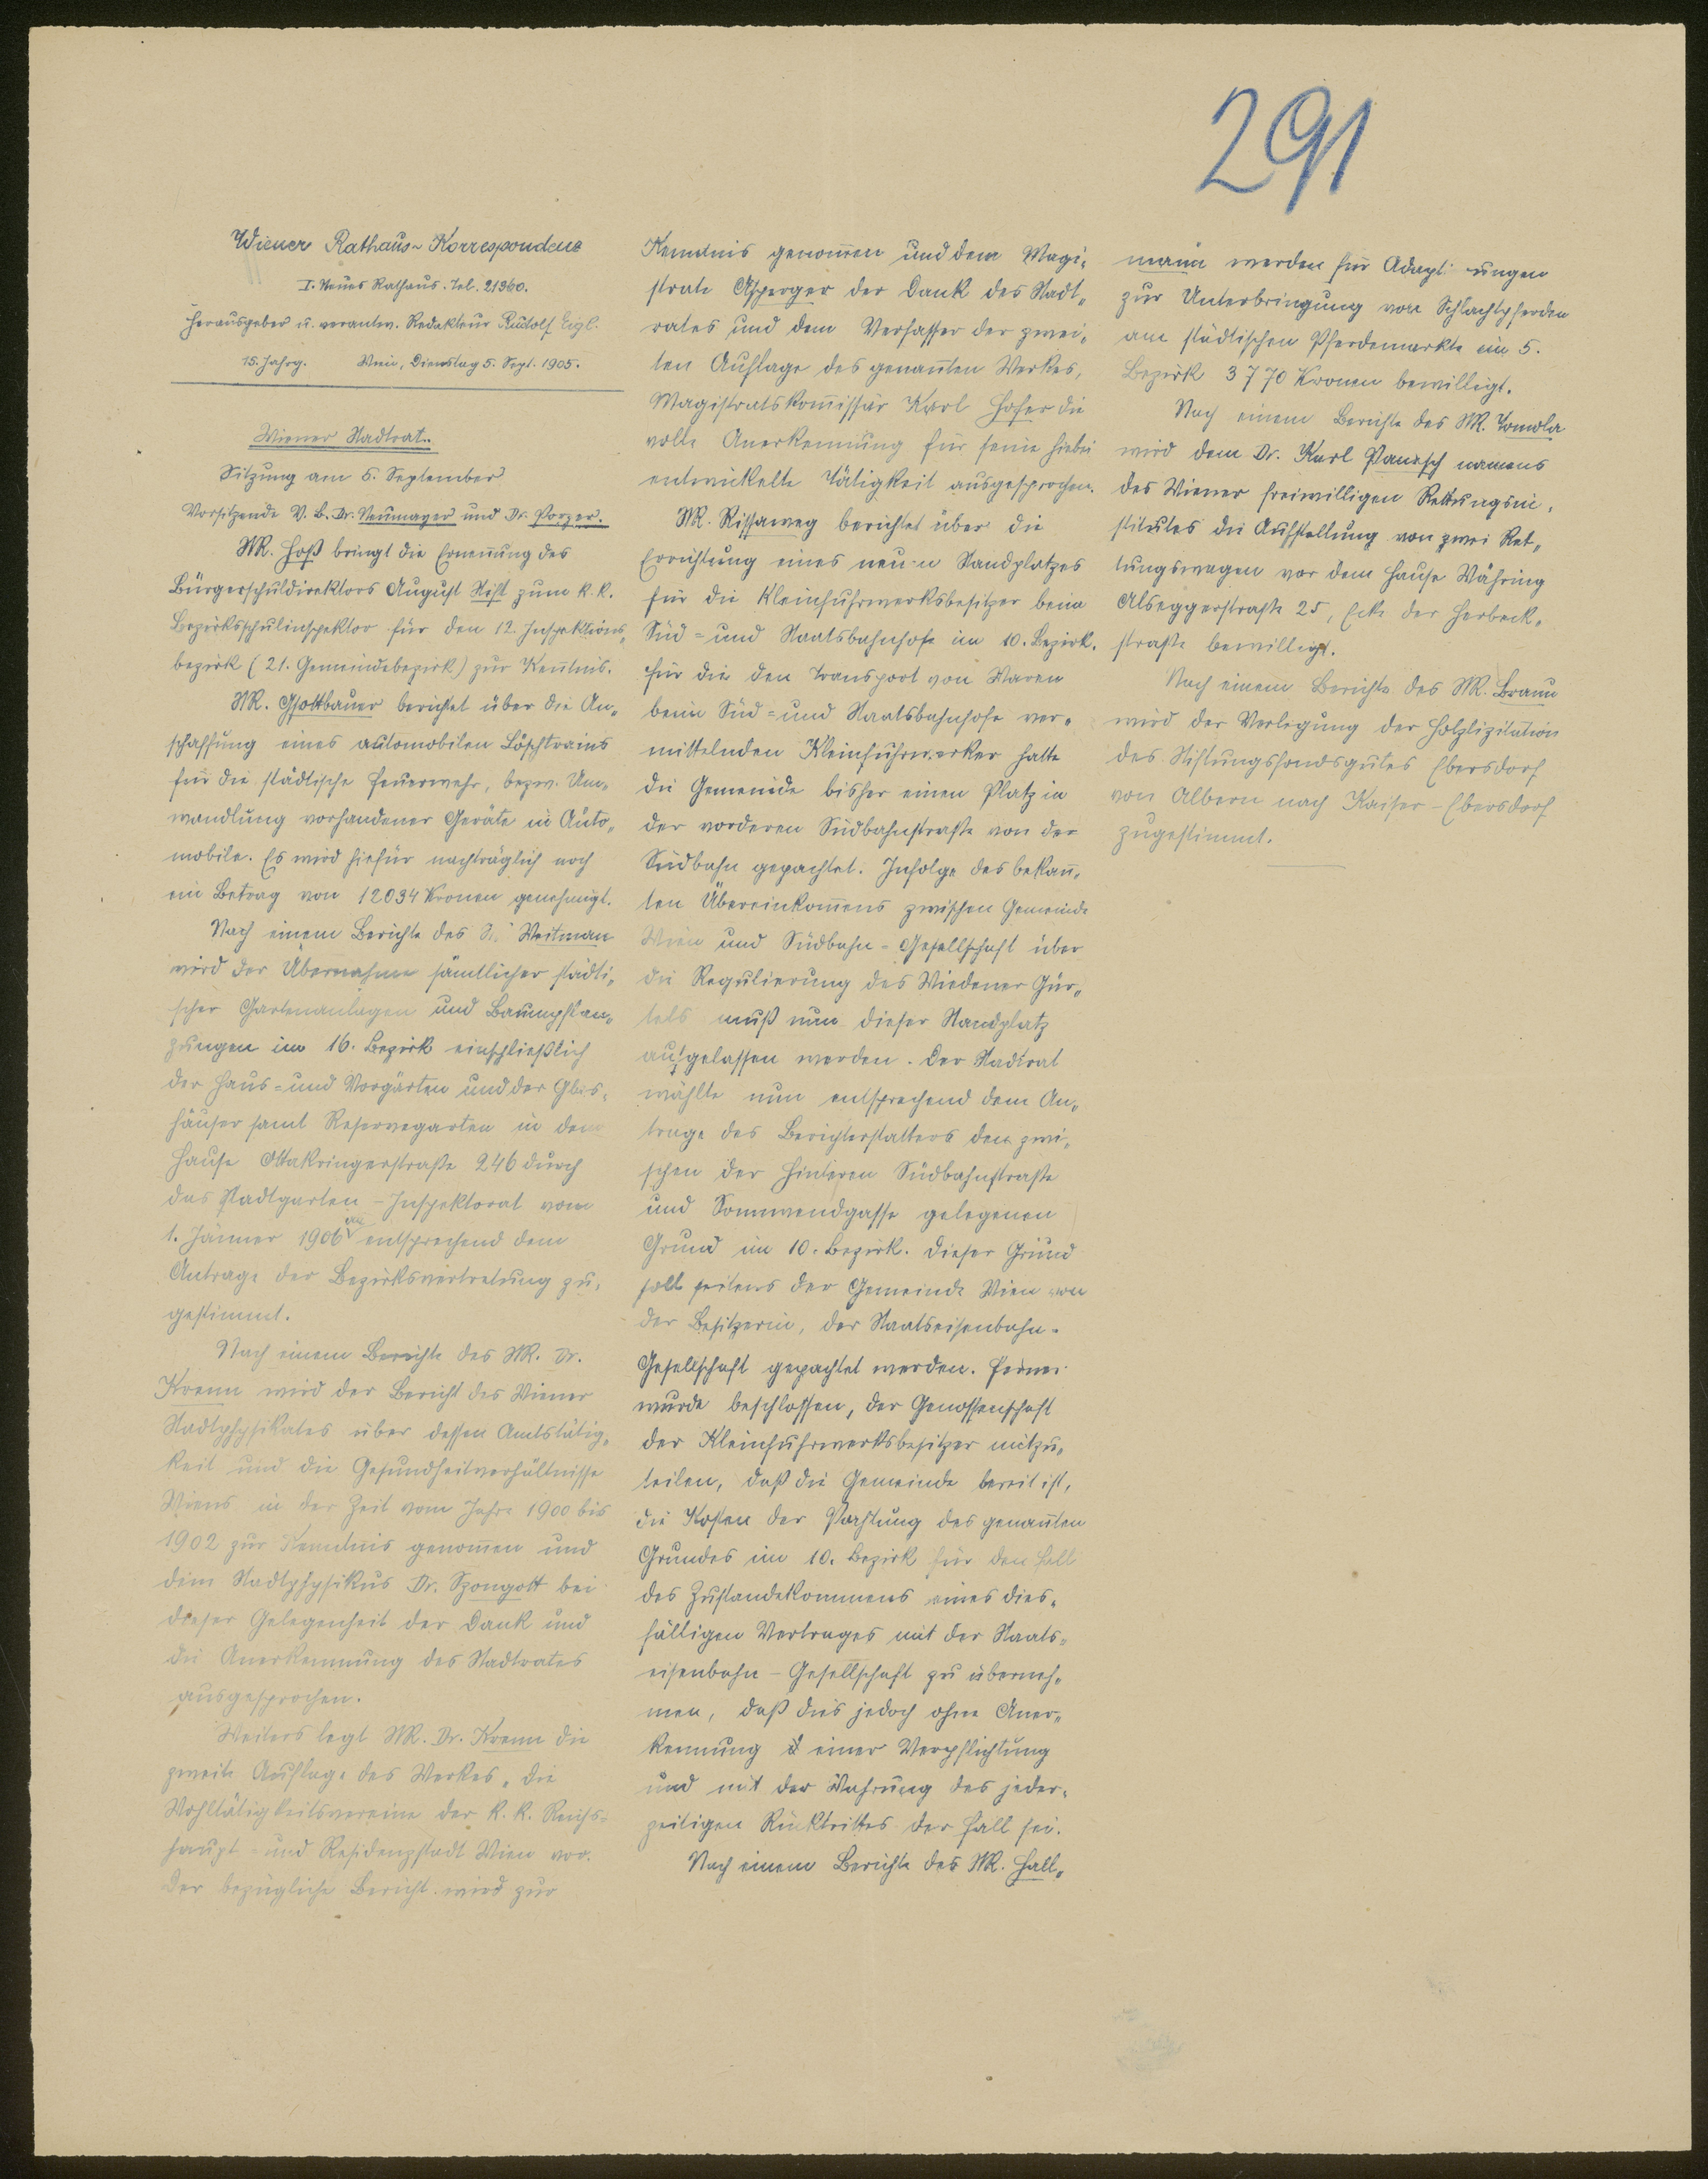 291
Wiener Rathaus-Korrespondenz
I. Neues Rathaus. Tel. 21360.
Herausgeber u. verantw. Redakteur Rudolf Eigl.
15. Jahrg. Wien, Dienstag 5. Sept. 1905.
Wiener Stadtrat.
Sitzung am 5. September
Vorsitzende V. B. Dr. Neumayer und Dr. Porzer.
StR. Hoß bringt die Ernennung des
Bürgerschuldirektors August zum k. k.
Bezirksschulinspektor für den 12. Inspektions„
bezirk (21. Gemeindebezirk) zur Kenntnis.
StR. Gsottbauer berichtet über die An„
schaffung eines automobilen Löschtrains
für die städtische Feuerwehr, bezw. Um„
wandlung vorhandener Geräte in Auto„
mobile. Es wird hiefür nachträglich noch
ein Betrag von 12034 Kronen genehmigt.
Nach einem Berichte des Weitman
wird der Übernahme sämtlicher städti„
scher Gartenanlagen und Baumpflan„
zungen im 16. Bezirk einschließlich
der Haus= und Vorgärten und der Glas„
häuser samt Reservegarten in dem
Hause Ottakringerstraße 246 durch
das Stadtgarten-Inspektorat vom
1. Jänner 1906 an entsprechend dem
Antrage der Bezirksvertretung zu„
gestimmt.
Nach einem Berichte des StR. Dr.
Krenn wird der Bericht des Wiener
Stadtphysikates über dessen Amtstätig„
keit und die Gesundheitverhältnisse
Wiens in der Zeit vom Jahre 1900 bis
1902 zur Kenntnis genom̄en und
dem Stadtphysikus Dr. Szongott bei
dieser Gelegenheit der Dank und
die Anerkennung des Stadtrates
ausgesprochen.
Weiters legt StR. Dr. Krenn die
zweite Auflage des Werkes „Die
Wohltätigkeitsvereine der k. k. Reichs=
haupt= und Residenzstadt Wien vor.
Der bezügliche Bericht wird zur
Kenntnis genom̄en und dem Magi„
strate Asperger der Dank des Stadt„
rates und dem Verfasser der zwei„
ten Auflage des genan̄ten Werkes,
Magistratskom̄issär Karl Hofer die
volle Anerkennung für seine hiebei
entwickelte Tätigkeit ausgesprochen.
StR. Rissaweg berichtet über die
Errichtung eines neuen Standplatzes
für die Kleinfuhrwerksbesitzer beim
Süd= und Staatsbahnhofe im 10. Bezirk.
Für die den Transport von Waren
beim Süd= und Staatsbahnhofe ver„
mittelnden Kleinfuhrwerker hatte
die Gemeinde bisher einen Platz in
der vorderen Südbahnstraße von der
Südbahn gepachtet. Infolge des bekan̄„
ten Übereinkom̄ens zwischen Gemeinde
Wien und Südbahn=Gesellschaft über
die Regulierung des Wiedener Gür„
tels muß nun dieser Standplatz
aufgelassen werden. Der Stadtrat
wählte nun entsprechend dem An„
trage des Berichterstatters den zwi„
schen der Hinteren Südbahnstraße
und Sonnwendgasse gelegenen
Grund im 10. Bezirk. Dieser Grund
soll seitens der Gemeinde Wien von
der Besitzerin, der Staatseisenbahn-
Gesellschaft gepachtet werden. Ferner
wurde beschlossen, der Genossenschaft
der Kleinfuhrwerksbesitzer mitzu„
teilen, daß die Gemeinde bereit ist,
die Kosten der Pachtung des genan̄ten
Grundes im 10. Bezirk für den Fall
des Zustandekommens eines dies„
fälligen Vertrages mit der Staats„
eisenbahn-Gesellschaft zu überneh„
men, daß dies jedoch ohne Aner„
kennung einer Verpflichtung
und mit der Wahrung des jeder„
zeitigen Rücktrittes der Fall sei.
Nach einem Berichte des StR. Hall„
mann werden für Adaptierungen
zur Unterbringung von Schlachtpferden
am städtischen Pferdemarkte im 5.
Bezirk 3770 Kronen bewilligt.
Nach einem Berichte des StR. Tomola
wird dem Dr. Karl Panesch namens
des Wiener freiwilligen Rettungsin„
stitutes die Aufstellung von zwei Ret„
tungswagen vor dem Hause Währing
Alseggerstraße 25, Ecke der Herbeck„
straße bewilligt.
Nach einem Berichte des StR. Braun
wird der Verlegung der Holzlizitation
des Stiftungsfondsgutes Ebersdorf
von Albern nach Kaiser-Ebersdorf
zugestimmt.